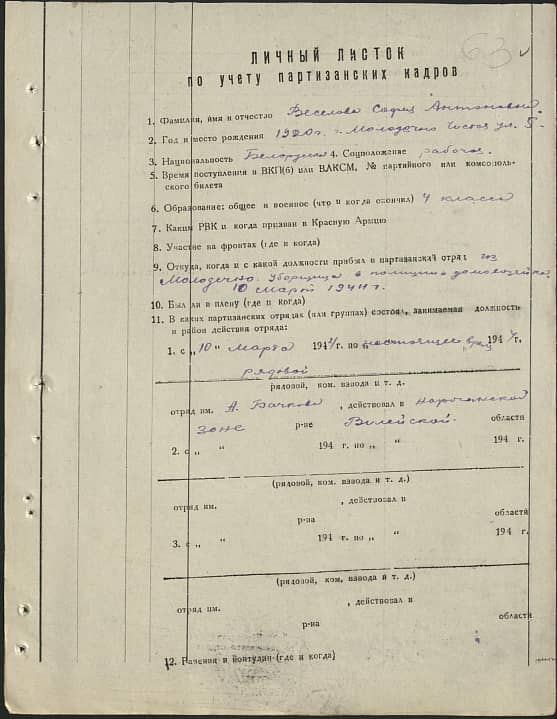 63
ЛИЧНЫЙ ЛИСТОК
по учету партизанских кадров
1. Фамилия, имя и отчество Веселова Антоновна
2. Год и место рождения 1920 г. г. Молодечно Чистая ул. 5
3. Национальность Белоруска 4. Соцположение рабочая
5. Время поступления в ВКП(б) или ВЛКСМ, № партийного или комсоменьского билета
6. Образование: общее и военное (что и когда окончил) 4 класса
7. Каким РВК и когда призван в Красную Армию
8. Участие на фронтах (где и когда)
9. Откуда, когда и с какой должности прибыл в партизанский отряд из
Молодечно. Уборщица в полиции домохозяйка
10 март 1944 г.
10. Был ли в плену (где и когда)
11. В каких партизанских отрядах (или группах) состоял, занимаемая должность
и район действия отряда:
1. с „10" марта 1944 г. по настоящее врем 1944 г.
рядовой
рядовой, ком. взвода и т. д.
отряд им. А. Бочкова, действовал в Нарочанской
зоне р-не Вилейской области
2. с „ " 194 г. по „ " 194 г.
(рядовой, ком. взвода и т. д.)
отряд им. , действовал в
р-на области
3. с „ " 194 г. по „ " 194 г.
(рядовой, ком. взвода и т. д.)
отряд им. , действовал в
р-на области
12. Ранения и контузии (где и когда)